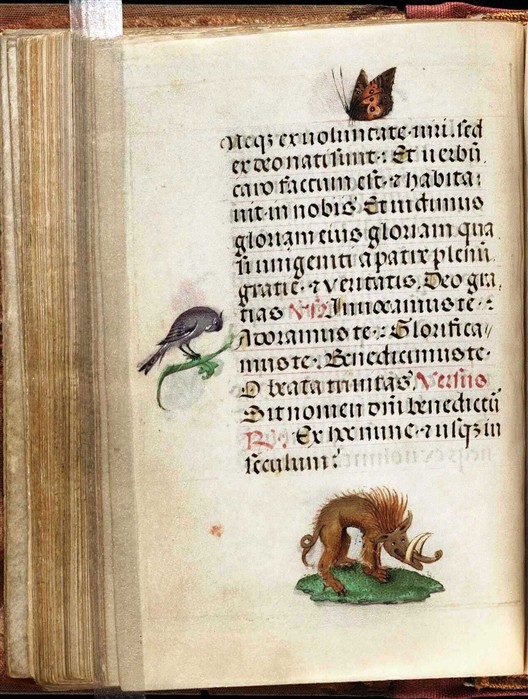 Neqꝫ ex uoluntate uiri. sed
ex deo nati sunt. Et uerbū
caro factum est. ⁊ habita⸗
uit in nobis Et uidimus
gloriam eius gloriam qua
si unigeniti a patre plenū
gratie. ⁊ veritatis. Deo gra
tias Vs. Inuocamus te.
Adoramus te. Glorifica⸗
mus te. Benedicimus te.
O beata trinitas. Versus
Sit nomen dn̄i benedictū
R. Ex hoc nunc ⁊ usqꝫ in
seculum.